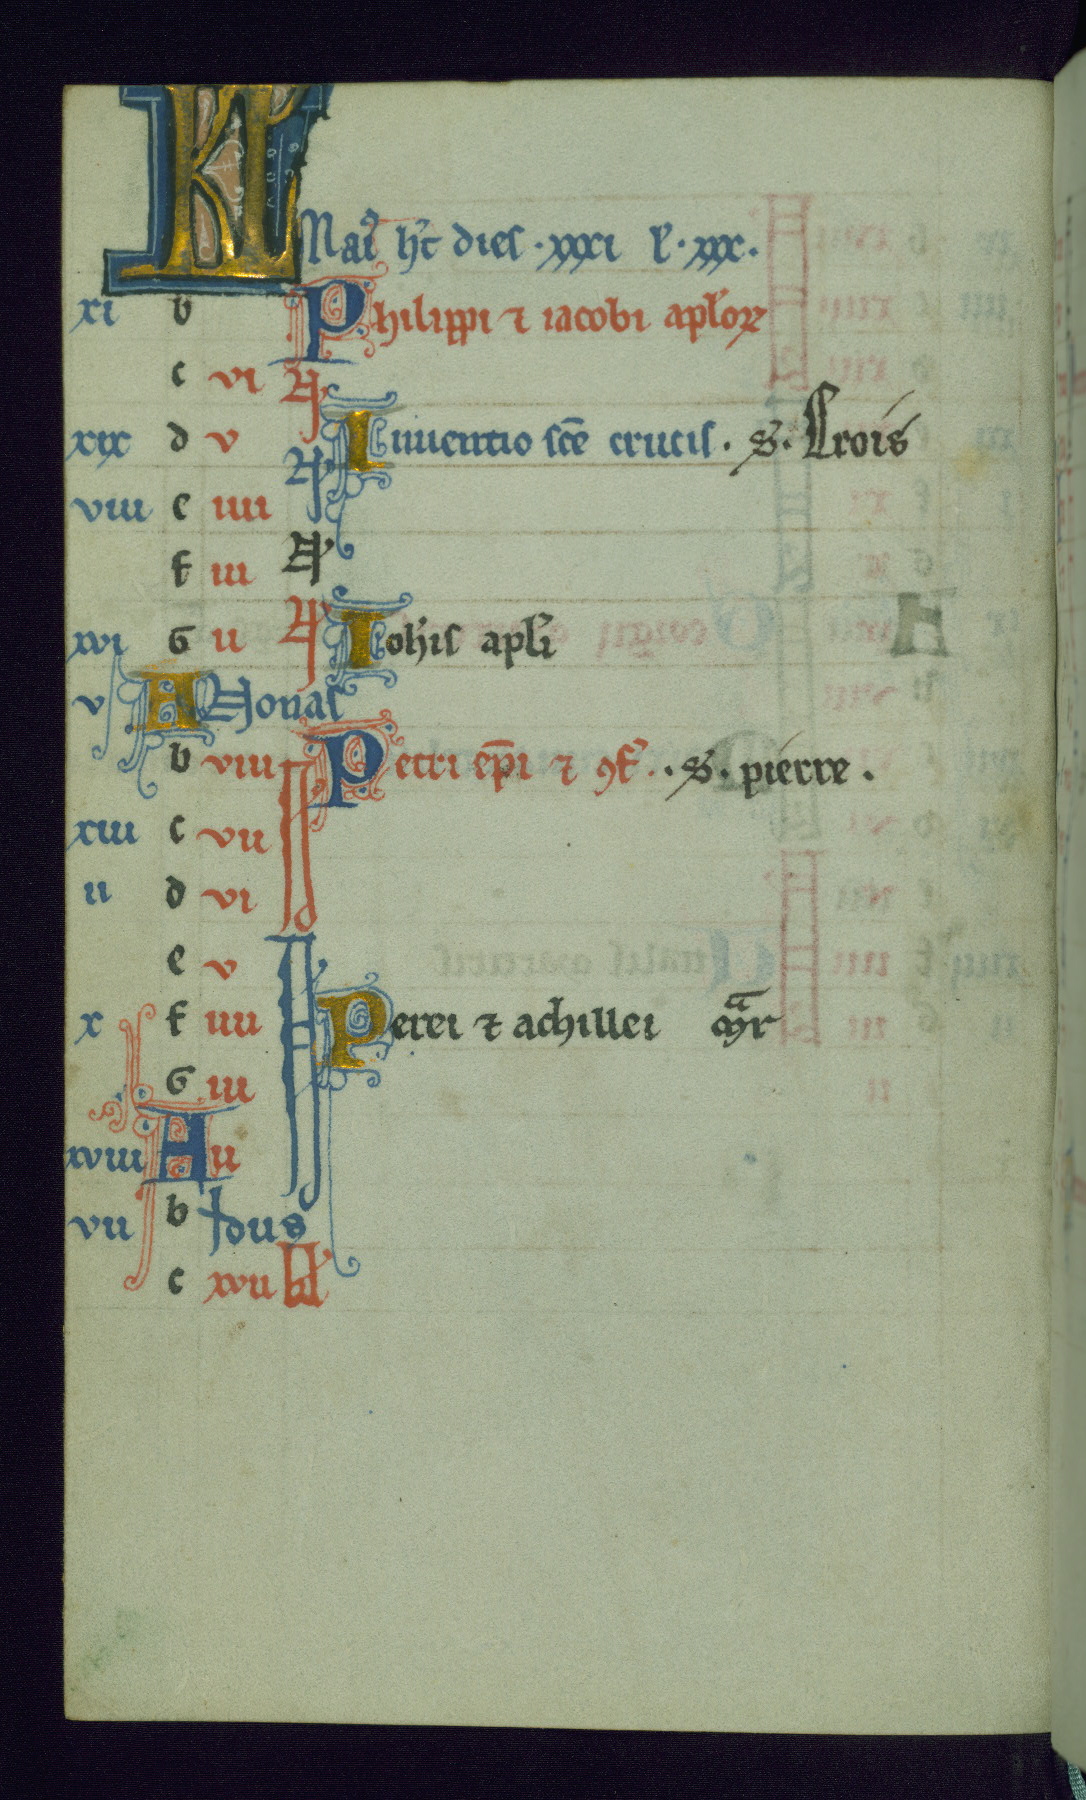 KL Mai' h't dies · xxxi l' · xxx ·
xi b Philippi ⁊ iacobi apl'oꝝ
c vi N̄
xix d v N̄ Inuentio sc̄e crucis . S. Crois
viii e iiii N̄
f iii N̄
xvi G ii N̄ Ioh'is apl'i
v A Nonas
b viii Id Petri ep̄i ⁊ ꝯf'. . S. pierre .
xiii c vii
ii d vi
e v
x f iiii Perei ⁊ achillei mr̄
G iii
xviii A ii
vii b Idus
c xvii kl'